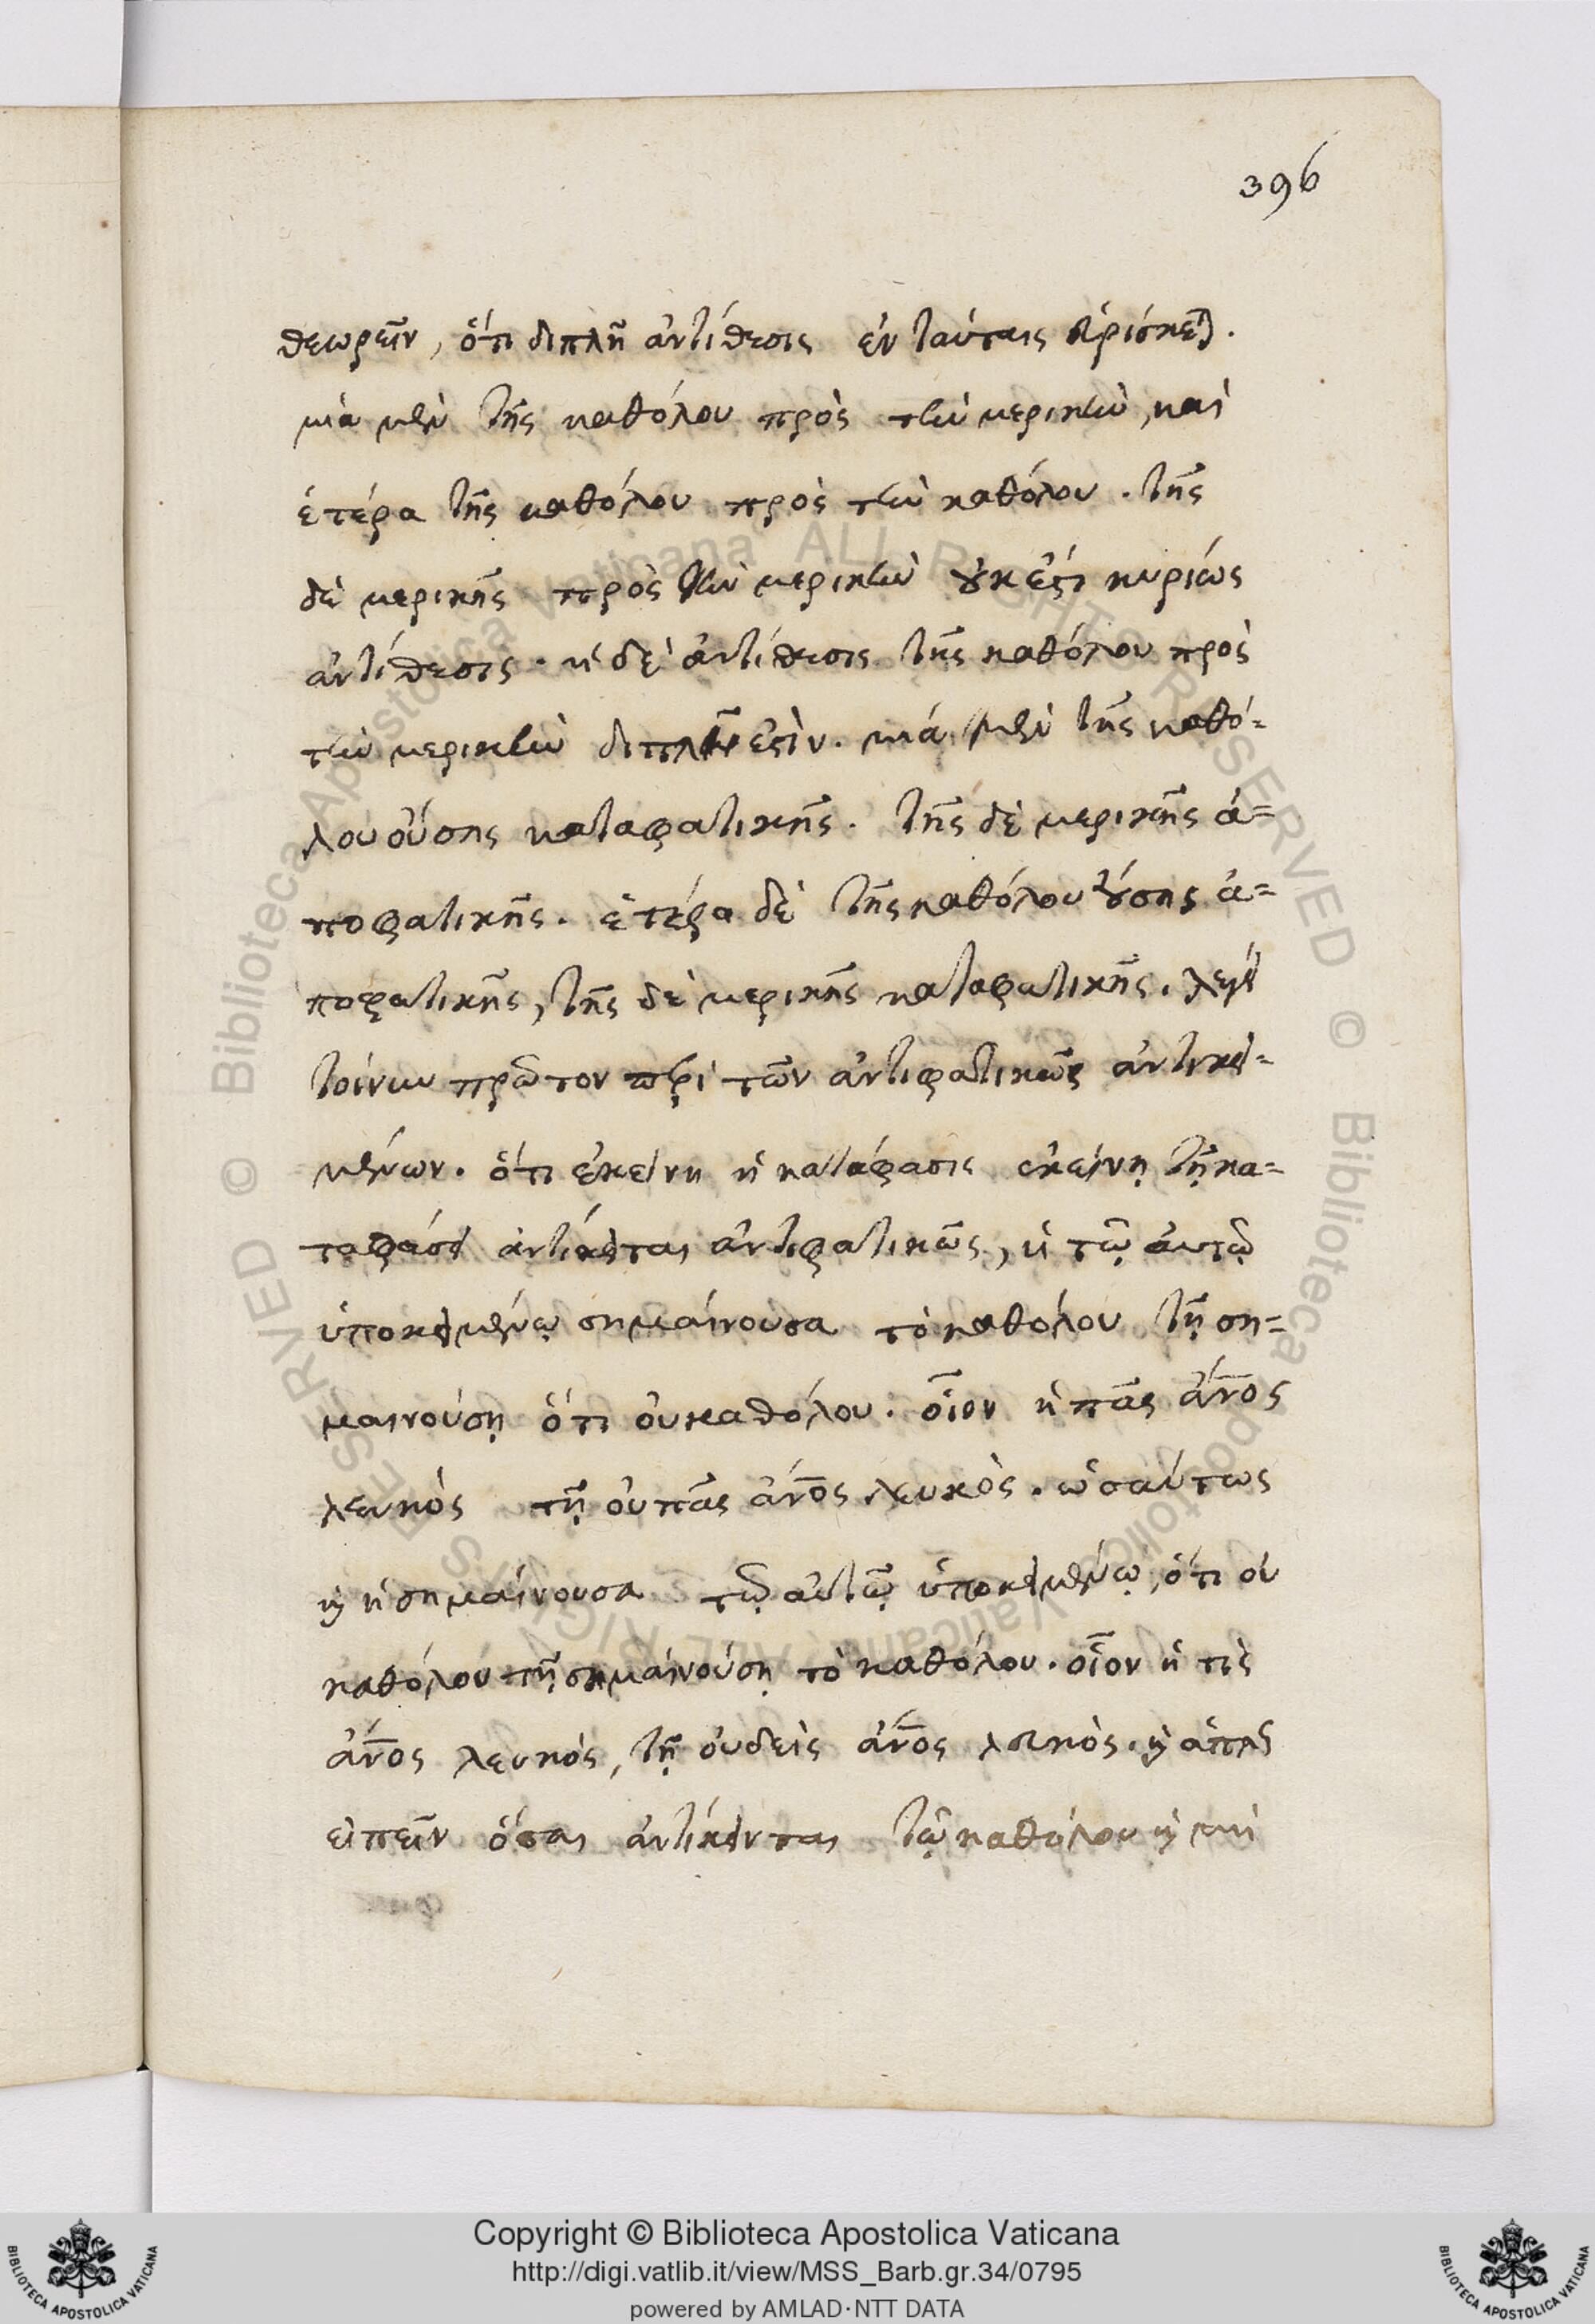 396
θεωρεῖν, ὅτι διπλῆ ἀντίθεσις ἐν ταύταις εὑρίσκεται.
μία μὲν τῆς καθόλου πρὸς τὴν μερικὴν, καὶ
ἑτέρα τῆς καθόλου πρὸς τὴν καθόλου. τῆς
δὲ μερικῆς πρὸς τὴν μερικὴν οὐκἔστι κυρίως
ἀντίθεσις. ἡ δὲ ἀντίθεσις τῆς καθόλου πρὸς
τὴν μερικὴν ἐστὶν. μιά μὲν τῆς καθό=
λου οὔσης καταφατικῆς. τῆς δὲ μερικῆς ἀ=
ποφατικῆς. ἑτέρα δὲ τῆς καθόλου οὔσης ἀ=
ποφατικῆς, τῆς δὲ μερικῆς καταφατικῆς. λέγει
τοίνυν πρῶτον περὶ τῶν ἀντιφατικῶς ἀντικει=
μένων. ὅτι ἐκείνη ἡ κατάφασις ἐκείνῃ τῇ κα=
ταφάσει ἀντίκειται ἀντιφατικῶς, ἡ τῷ αὐτῷ
ὑποκειμένῳ σημαίνουσα τὸ καθόλου τῇ ση=
μαινούσῃ ὅτι οὐ καθόλου. οἷον ἡ πᾶς ἄνος
λευκὸς τῇ οὐ πᾶς ἄνος λευκὸς. ὡσαύτως
ϗ ἡ σημαίνουσα τῷ αὐτῷ ὑποκειμένῳ, ὅτι οὐ
καθόλου τῇ σημαινούσῃ τὸ καθόλου. οἷον ἡ τὶς
ἄνος λευκὸς, τῇ οὐδεὶς ἄνος λευκὸς. ϗ ἁπλῶς
εἰπεῖν ὅσαι ἀντίκεινται τῷ καθόλου ϗ μὴ
Copyright © Biblioteca Apostolica Vaticana
http://digi.vatlib.it/view/MSS_Barb.gr.34/0795
powered by AMLAD·NTT DATA
BIBLIOTECA APOSTOLICA VATICANA
BIBLIOTECA APOSTOLICA VATICANA
© Biblioteca Apostolica Vaticana ALL RIGHTS RESERVED © Biblioteca Apostolica Vaticana ALL RIGHTS RESERVED